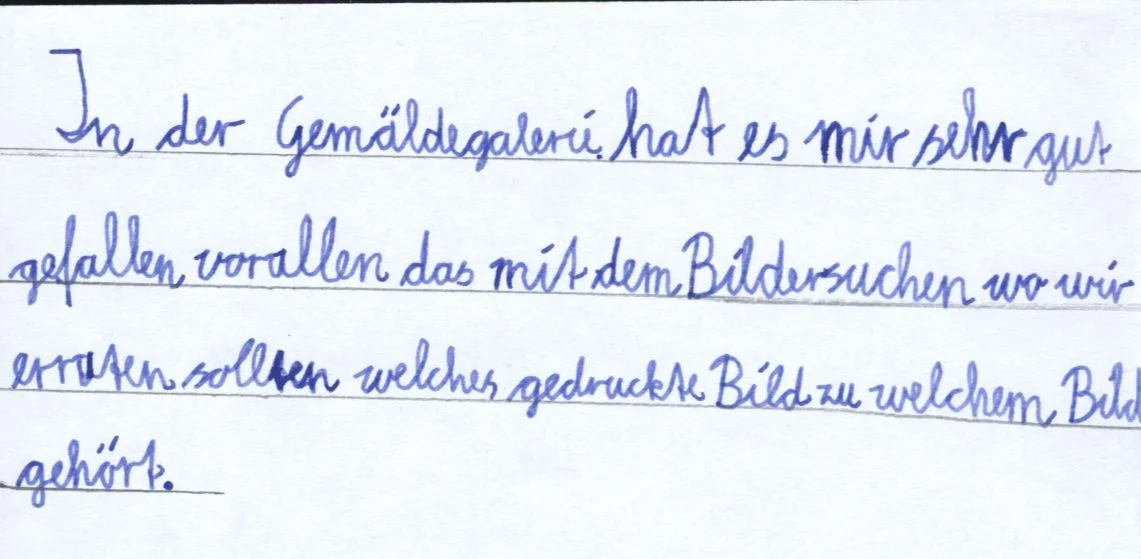 In der Gemäldegalerie hat es mir sehr gut
gefallen vorallen das mit dem Bildersuchen wo wir
erraten sollten welches gedruckte Bild zu welchem Bild
gehört.